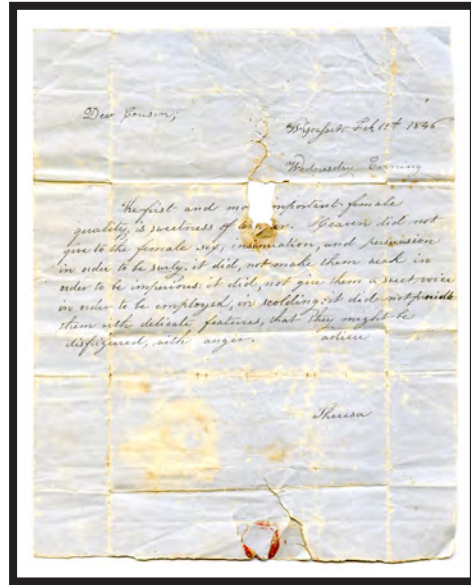 Dear Cousin,
Wiscasset Feb 11th 1846
Wednesday Evening
The first and most important female
quality, is sweetness of temper. Heaven did not
give to the female sex, insinuation, and persuasion
in order to be surly, it did, not make them weak in
order to be imperious: it did, not give them a sweet voice
in order to be employed, in scolding: it did not provide
them with delicate, features, that they might be
disfigured, with anger. adieu
Theresa